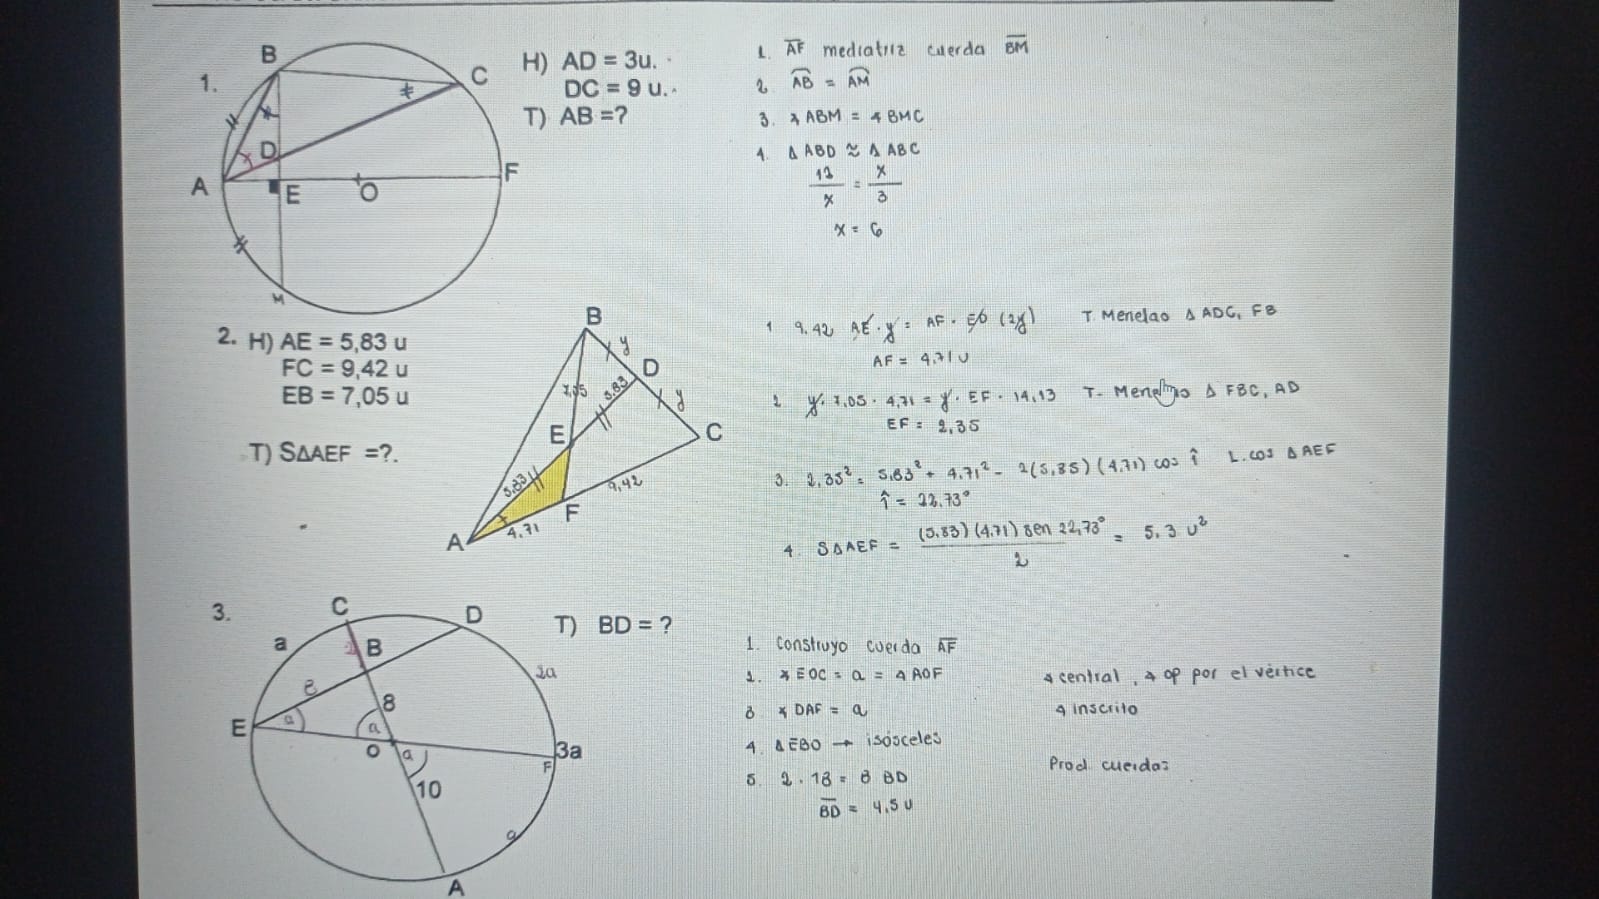 1.
B
C
D
A
E
O
F
M
H) AD = 3u.
DC = 9 u.
T) AB =?
1. AF mediatriz cuerda BM
2. AB = AM
3. ∢ ABM = ∢ BMC
4. Δ ABD ≈ Δ ABC
12/x = x/3
x = 6
2. H) AE = 5,83 u
FC = 9,42 u
EB = 7,05 u
T) SΔAEF =?.
B
y
D
7,05
5.83
y
E
C
5.83
9,42
F
A
4.71
1 9.42 AE · y = AF · ED (2y) T. Menelao Δ ADC, FB
AF = 4.71 u
2 y · 7,05 · 4,71 = y · EF · 14,13 T. Menelao Δ FBC, AD
EF = 2,35
3. 2,35² = 5,83² + 4,71² - 2(5,85)(4,71) cos î L. cos Δ AEF
î = 22.73°
4. SΔAEF = (5,83)(4,71) sen 22,73° / 2 = 5,3 u²
3.
C
D
a
2
B
2a
8
8
E
a
a
O
a
3a
F
10
a
A
T) BD = ?
1. Construyo cuerda AF
2. ∢ EOC = a = ∢ AOF ∢ central, ∢ op por el vértice
3 ∢ DAF = a ∢ inscrito
4. Δ EBO → isósceles
5. 2 · 18 = 8 BD Prod. cuerdas
BD = 4,5 u